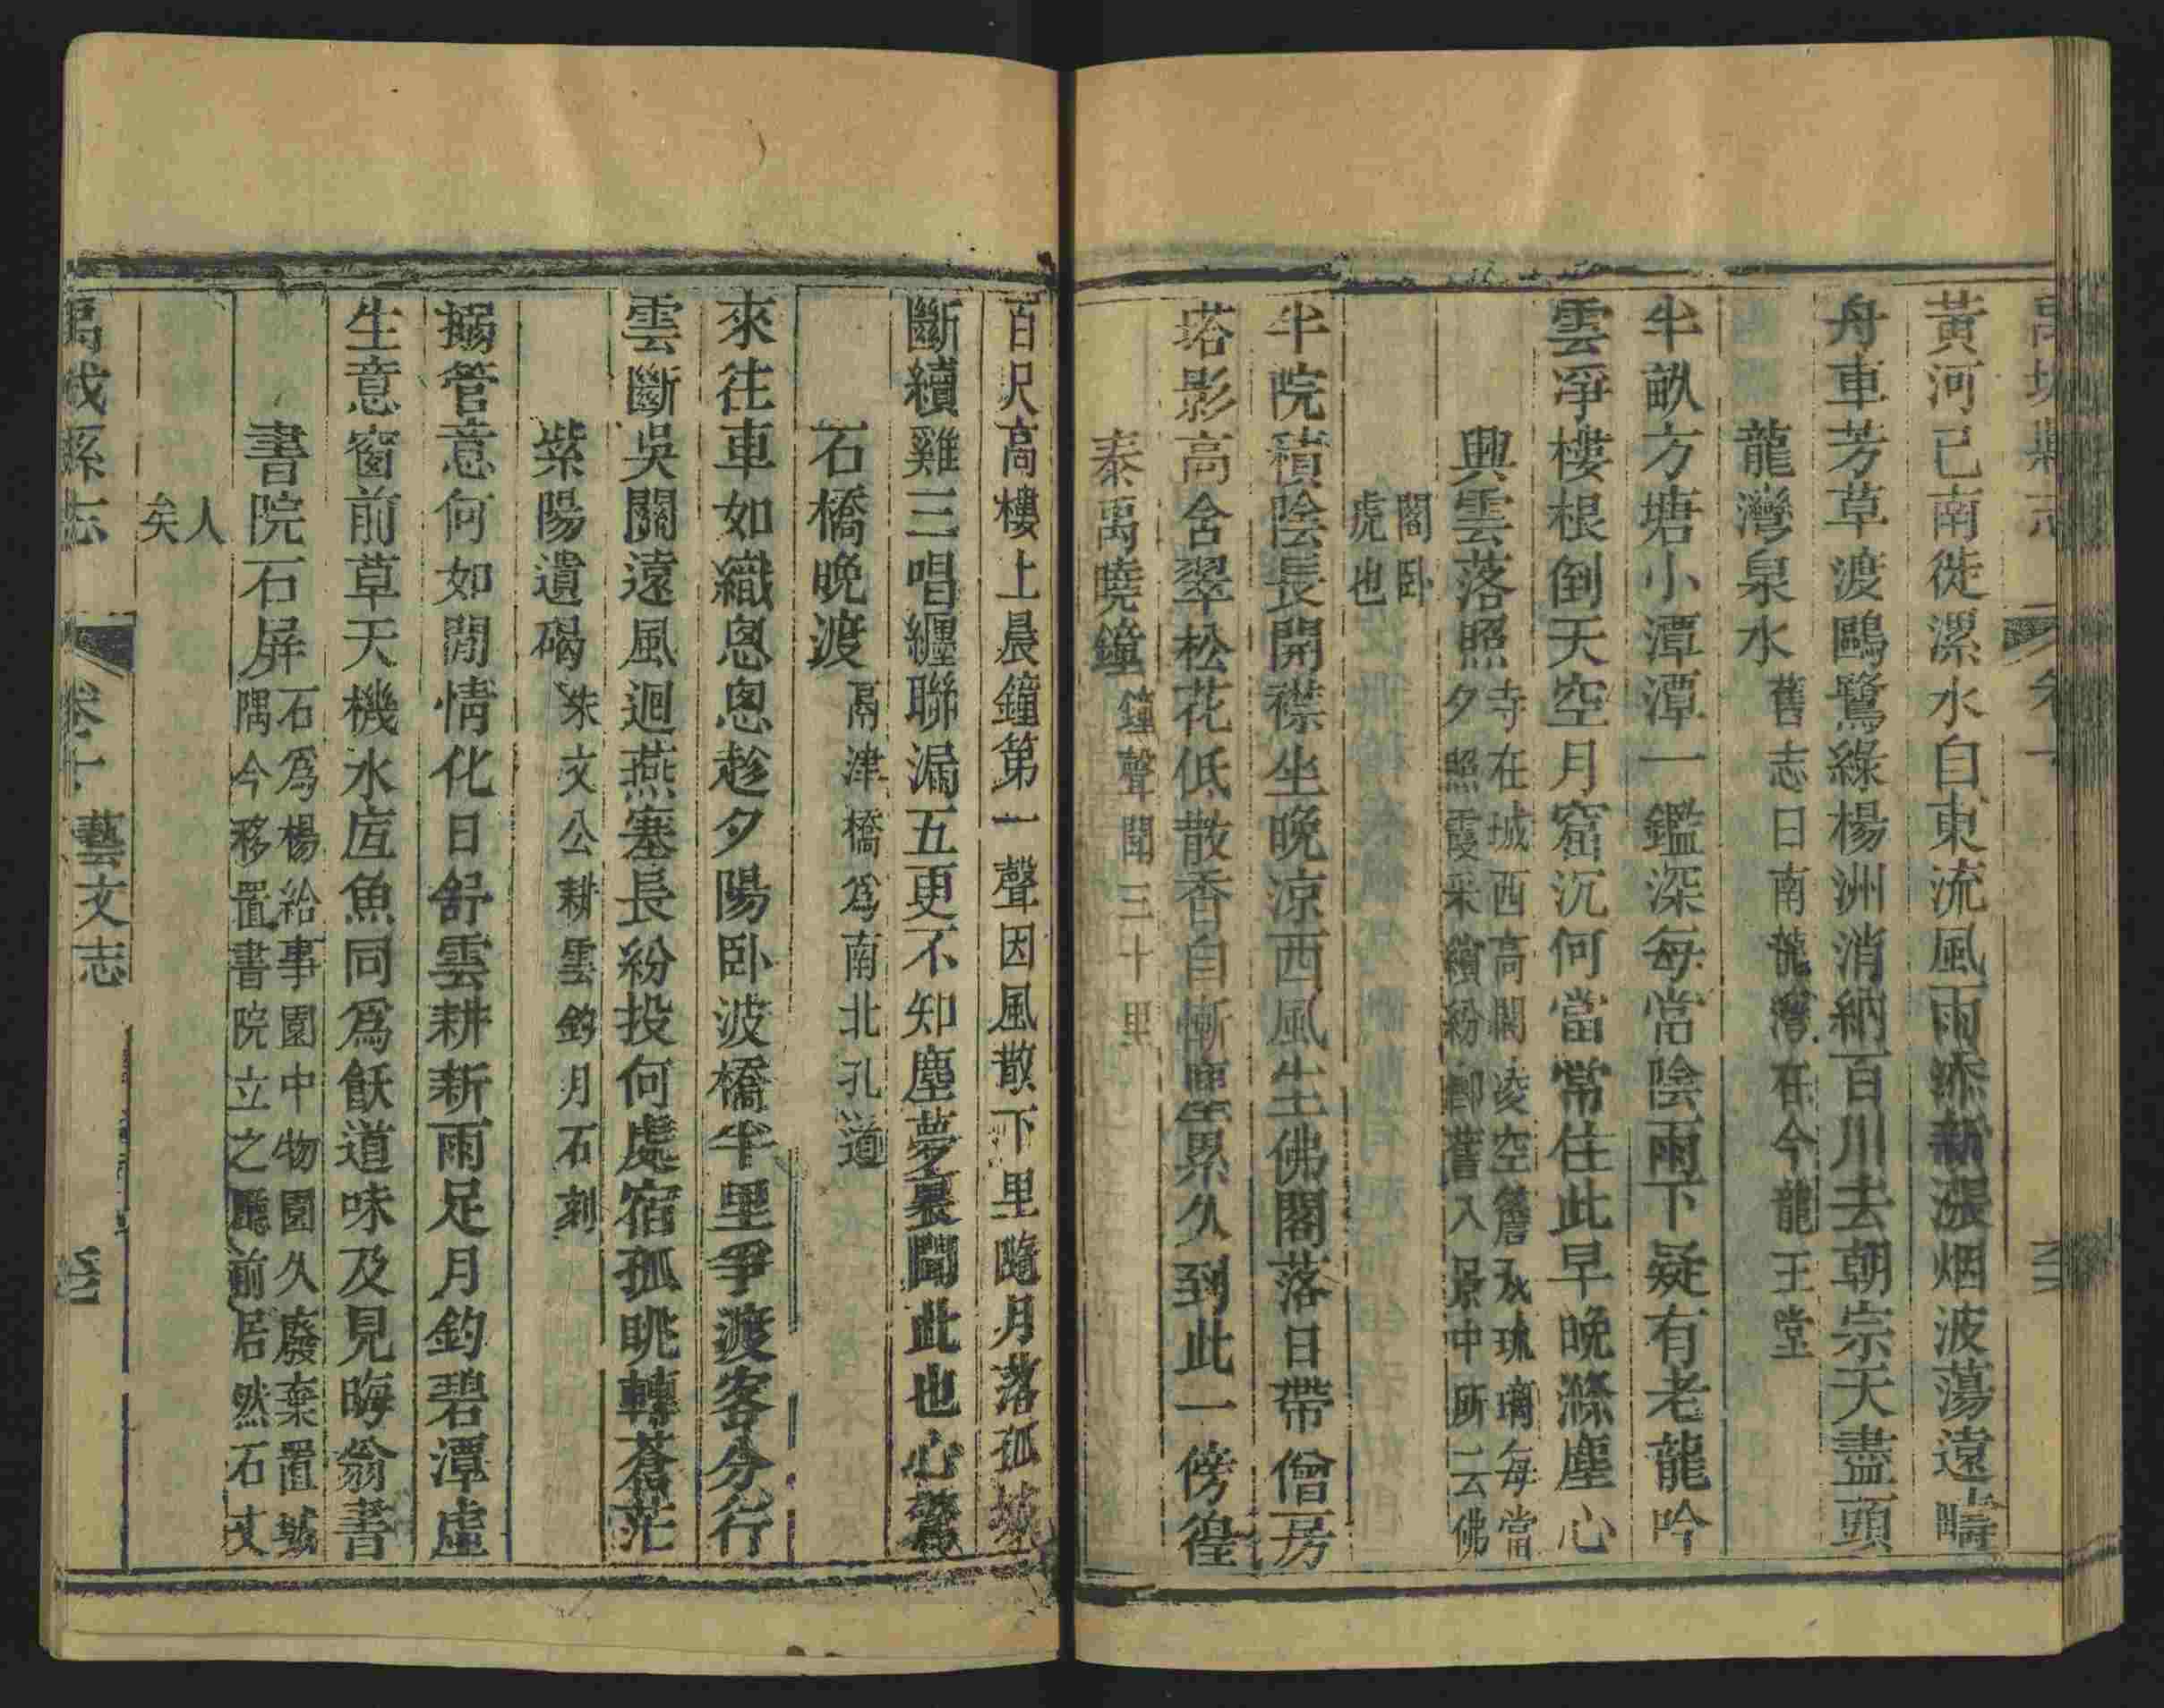 黃河已南徙漯水自東流風雨添新漲烟波蕩遠疇
舟車芳草渡鷗鷺綠楊洲消納百川去朝宗天盡頭
龍灣泉水 舊志曰南龍灣在今龍王堂
半畝方塘小潭潭一鑑深每當陰雨下疑有老龍吟
雲凈樓根倒天空月窟沉何當常住此早晚滌塵心
興雲落照 寺在城西高閣凌空簷永琉璃每當
夕照霞采繽紛卽舊入景中所云佛
閣卧
虎也
半院積陰長開襟坐晚涼西風生佛閣落日帶僧房
塔影高含翠松花低散香自慚塵累久到此一傍徨
泰禹曉鐘 鐘聲聞三十里
百尺高樓上晨鐘第一聲因風散下里隨月落孤城
斷續雞三唱纏聯漏五更不知塵夢裏聞此也心驚
石橋晚渡 鬲津橋爲南北孔道
來往車如織悤悤趁夕陽卧波橋半里爭渡客分行
雲斷吳關遠風迴燕塞長紛投何處宿孤眺轉蒼茫
紫陽遺碣 朱文公耕雲釣月石刻
搦管意何如閒情化日舒雲耕新雨足月釣碧潭虛
生意窗前草天機水底魚同爲飫道味及見晦翁書
書院石屏 石爲楊給事園中物園久廢棄置城
隅今移置書院立之廳前居然石丈
人
矣
禹城縣志 卷十 藝文志